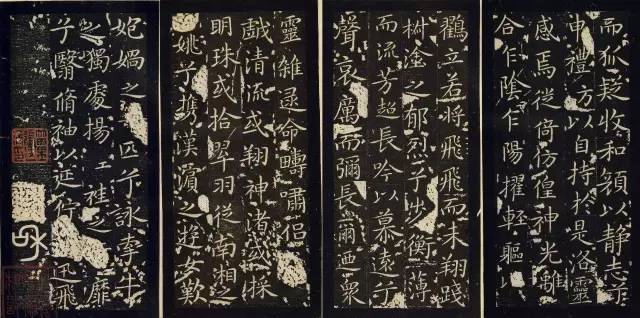 而狐疑收和顏以静志兮
申禮防以自持於是洛靈
感焉徙倚仿偟神光離
合乍陰乍陽擢輕軀以
鸖立若將飛飛而未翔踐
椒塗之郁烈兮步衡薄
而流芳超長吟以慕遠兮
聲哀厲而彌長爾迺衆
靈雜遝命疇肅侣
戲清流或翔神渚或採
明珠或拾翠羽從南湘之
姚兮攜漢濱之遊女歎
媧之匹兮詠牽牛
之獨處揚袿之靡
兮翳脩袖以延佇迅飛